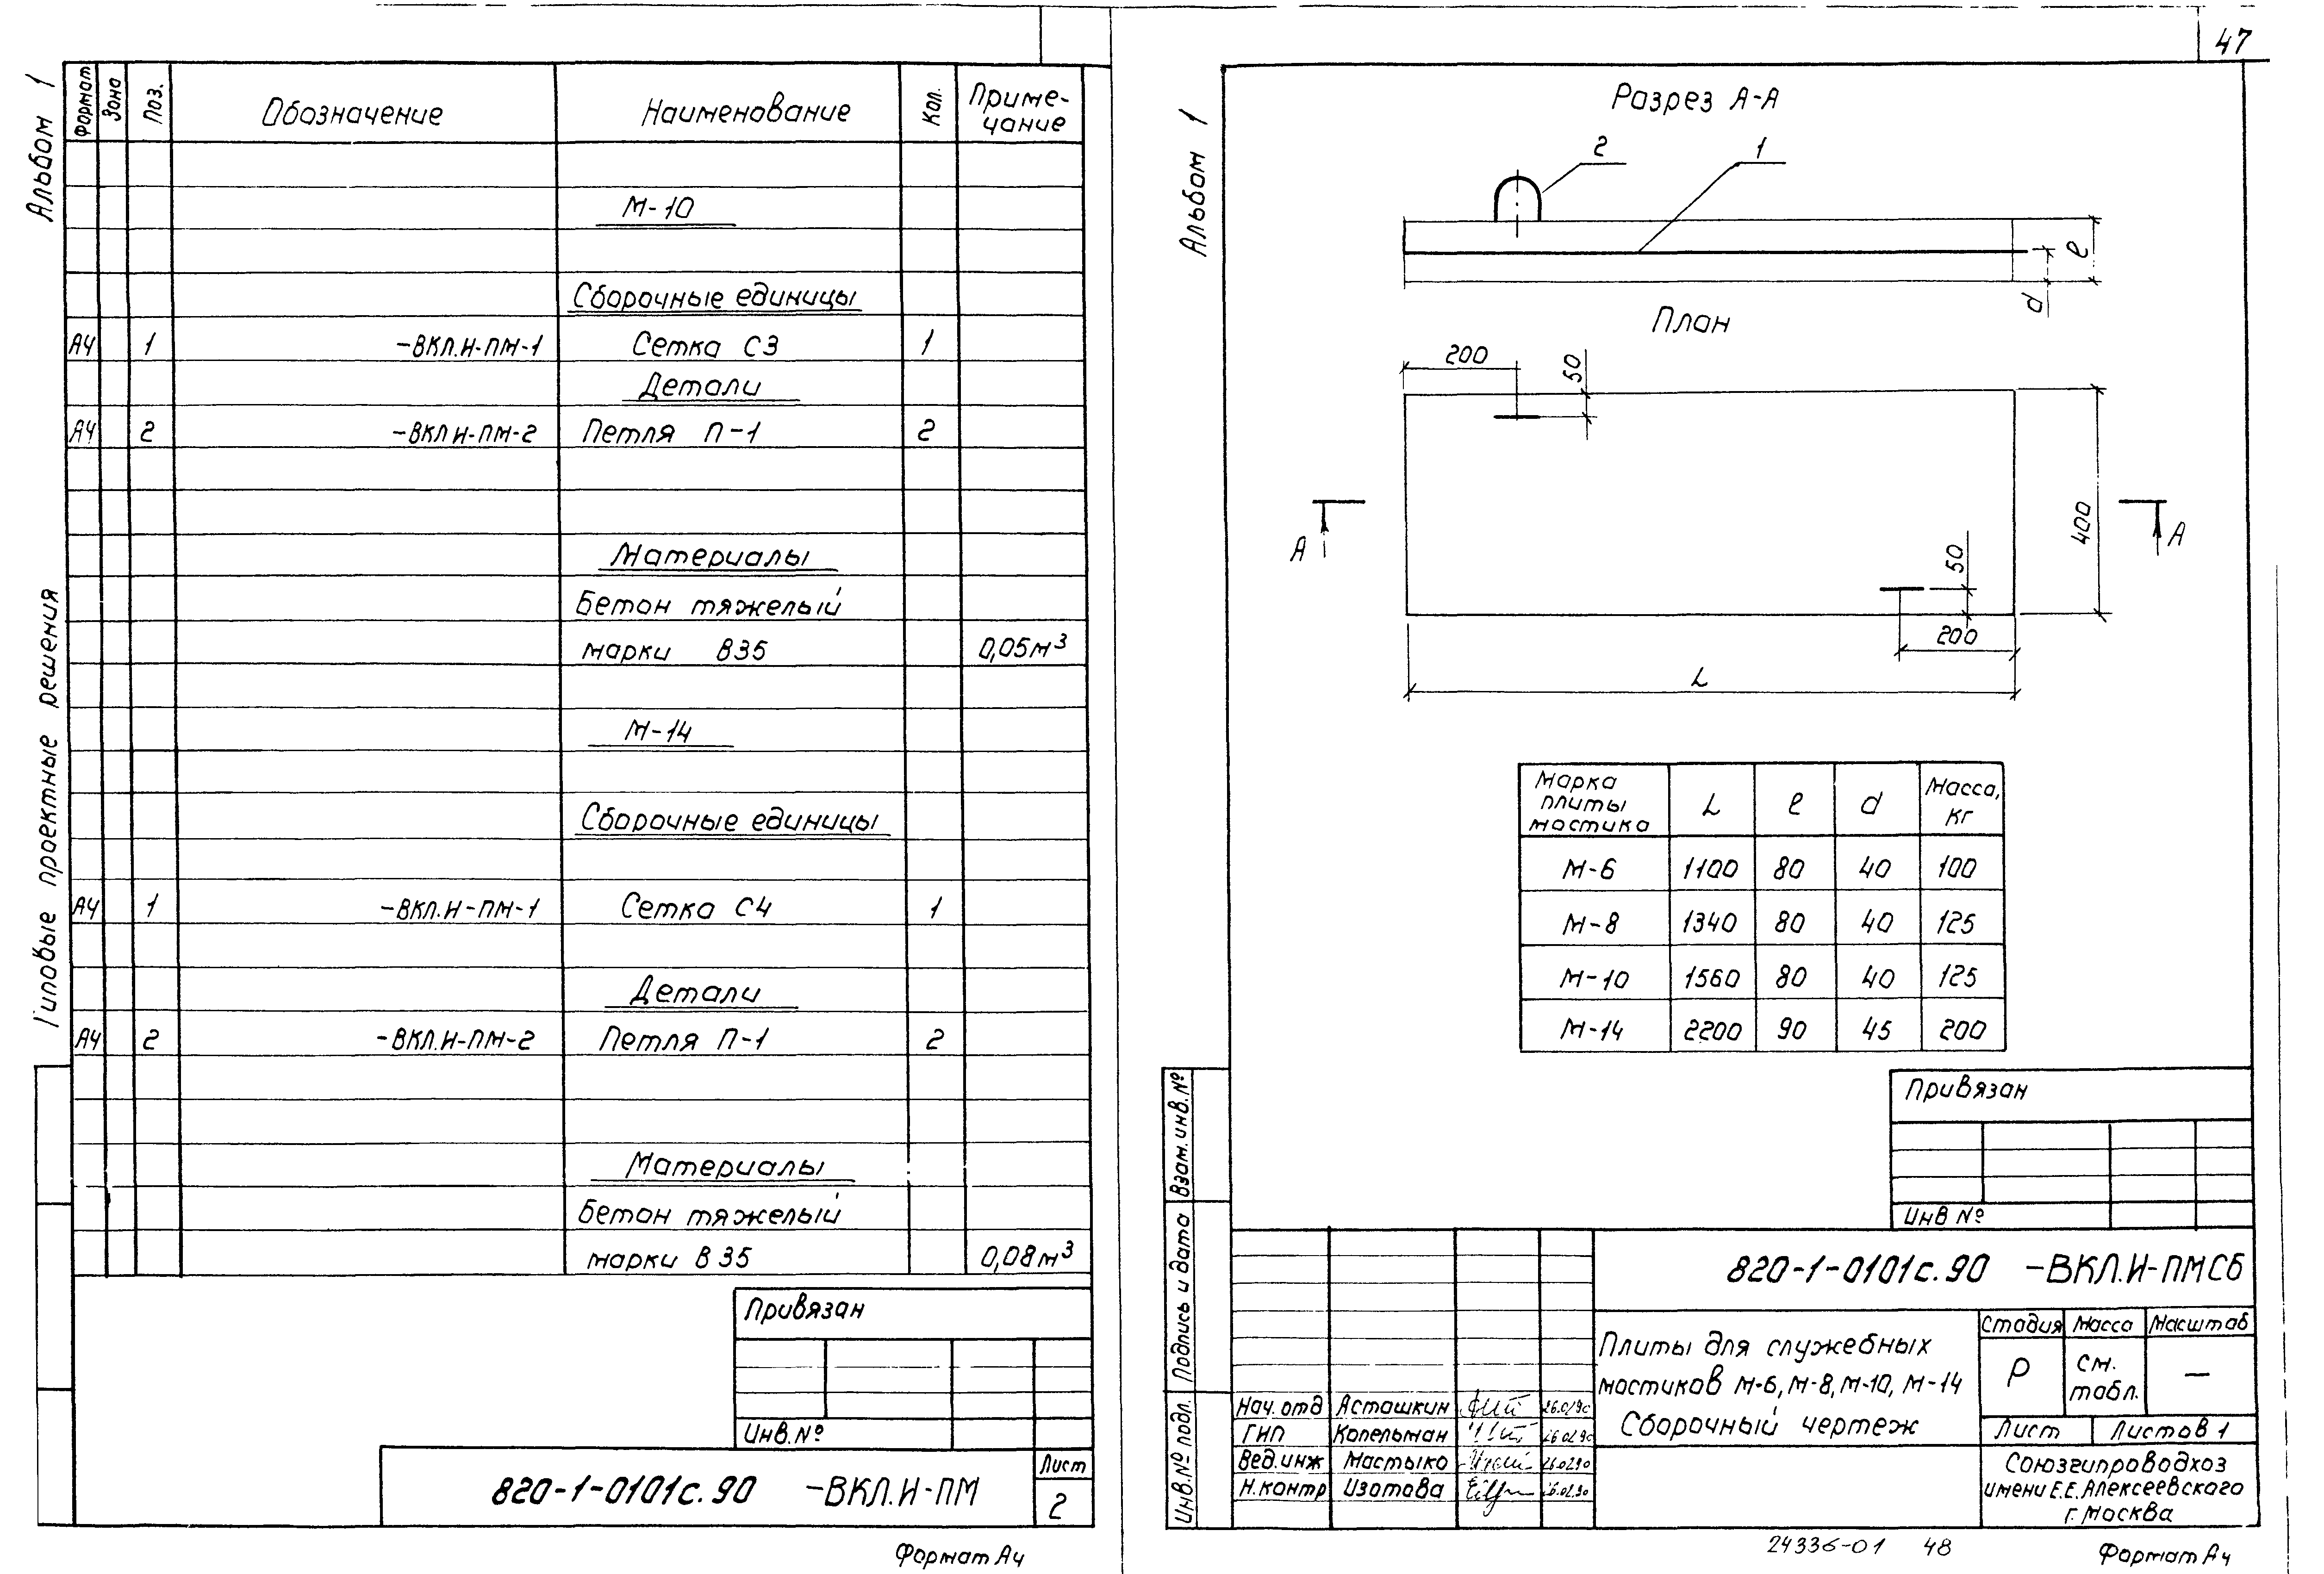 47
Альбом 1
Типовые проектные решения
Формат Зона Поз. Обозначение Наименование Кол. Приме-
чание
М-10
Сборочные единицы
А4 1 -ВКЛ.И-ПМ-1 Сетка С3 1
Детали
А4 2 -ВКЛ И-ПМ-2 Петля П-1 2
Материалы
Бетон тяжелый
марки В35 0,05м³
М-14
Сборочные единицы
А4 1 -ВКЛ.И-ПМ-1 Сетка С4 1
Детали
А4 2 -ВКЛ.И-ПМ-2 Петля П-1 2
Материалы
Бетон тяжелый
марки В 35 0,08м³
Привязан
Инв.№
820-1-0101с.90 -ВКЛ.И-ПМ
Лист
2
Формат А4
Альбом 1
Разрез А-А
2 1
ℓ
d
План
200 50
400
А А
50
200
L
Марка
плиты
мостика L ℓ d Масса,
кг
М-6 1100 80 40 100
М-8 1340 80 40 125
М-10 1560 80 40 125
М-14 2200 90 45 200
Привязан
Инв №
Взам.инв.№
Подпись и дата
Инв.№ подл.
820-1-0101с.90 -ВКЛ.И-ПМСб
Плиты для служебных
мостиков М-6, М-8, М-10, М-14
Сборочный чертеж
Стадия Масса Масштаб
Р см.
табл. —
Лист Листов 1
Нач.отд Асташкин 26.0290
ГИП Копельман 26.0290
Вед.инж Мастыко 26.0290
Н.контр Изотова 26.02.90
Союзгипроводхоз
имени Е.Е.Алексеевского
г.Москва
24336-01 48
Формат А4